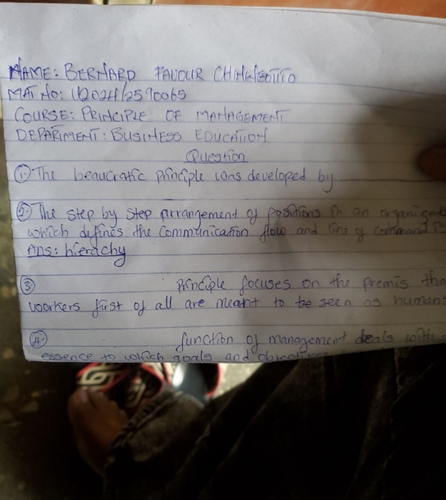 NAME: BERNARD FAVOUR
MAT NO: U2024/2590065
COURSE: PRINCIPLE OF MANAGEMENT
DEPARTMENT: BUSINESS EDUCATION
Question
① The beaucratic principle was developed by
② The step by step arrangement of positions in an
which defines the communication flow and line of command
Ans: hierachy
③ principle focuses on the premis
workers first of all are meant to be seen as human
④ function of management deals with
essence to which goals and